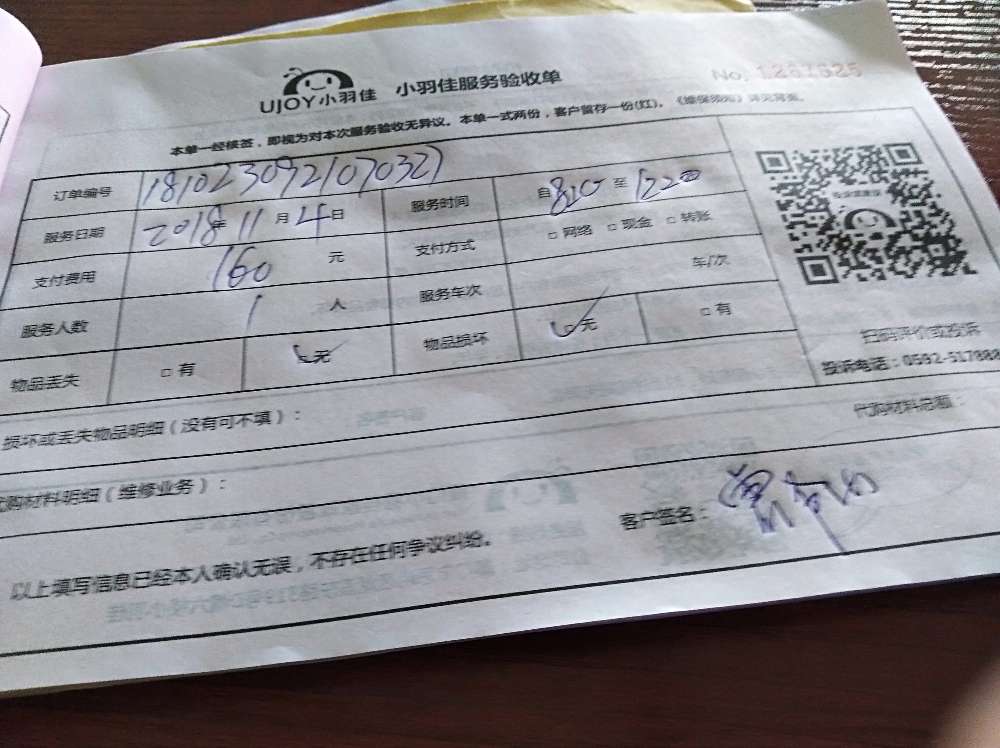 UJOY小羽佳 小羽佳服务验收单 No.
本单一经核签，即视为对本次服务验收无异议。本单一式两份，客户留存一份(红)。《维保须知》详见背面。
订单编号 1810230921070327
服务日期 2018年11月4日 服务时间 自820至1220
支付费用 160元 支付方式 □网络 □现金 □转账
服务人数 1人 服务车次 车/次
物品丢失 □有 ☑无 物品损坏 ☑无 □有
扫码评价或投诉
投诉电话：0592-517888
损坏或丢失物品明细（没有可不填）：
购材料明细（维修业务）： 代购材料总额：
以上填写信息已经本人确认无误，不存在任何争议纠纷。 客户签名：